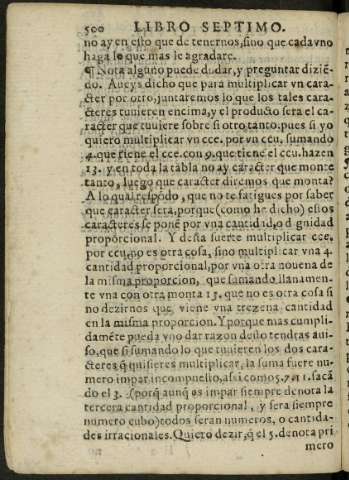 500 LIBRO SEPTIMO.
no ay en esto que detenernos, sino que cada vno
haga lo que mas le agradare.
¶ Nota alguno puede dudar, y preguntar diziẽ-
do. Aueys dicho que para multiplicar vn cara-
cter por otro, juntaremos lo que los tales cara-
cteres tuuieren encima, y el producto sera el ca-
racter que tuuiere sobre si otro tanto. pues si yo
quiero multiplicar vn cce. por vn ccu, sumando
4. que tiene el cce. con 9. que tiene el ccu. hazen
13. y en toda la tabla no ay caracter que monte
tanto, luego que caracter diremos que monta?
A lo qual respõdo, que no te fatigues por saber
que caracter sera, porque (como he dicho) estos
caracteres se ponẽ por vna cantidad, o dignidad
proporcional. Y desta suerte multiplicar cce.
por ccu, no es otra cosa, sino multiplicar vna 4.
cantidad proporcional, por vna otra nouena de
la misma proporcion, que sumando llanamen-
te vna con otra monta 13. que no es otra cosa si
no dezirnos que viene vna trezena cantidad
en la misma proporcion. Y porque mas cumpli-
damẽte pueda vno dar razon desto tendras aui-
so, que si sumando lo que tuuieren los dos cara-
cteres q̃ quisieres multiplicar, la suma fuere nu-
mero impar incompuesto, assi como 5. 7. 11. sacã
do el 3. (porq̃ aunq̃ es impar siempre denota la
tercera cantidad proporcional, y sera siempre
numero cubo) todos seran numeros, o cantida-
des irracionales. Quiero dezir, q̃ el 5. denota pri
mero